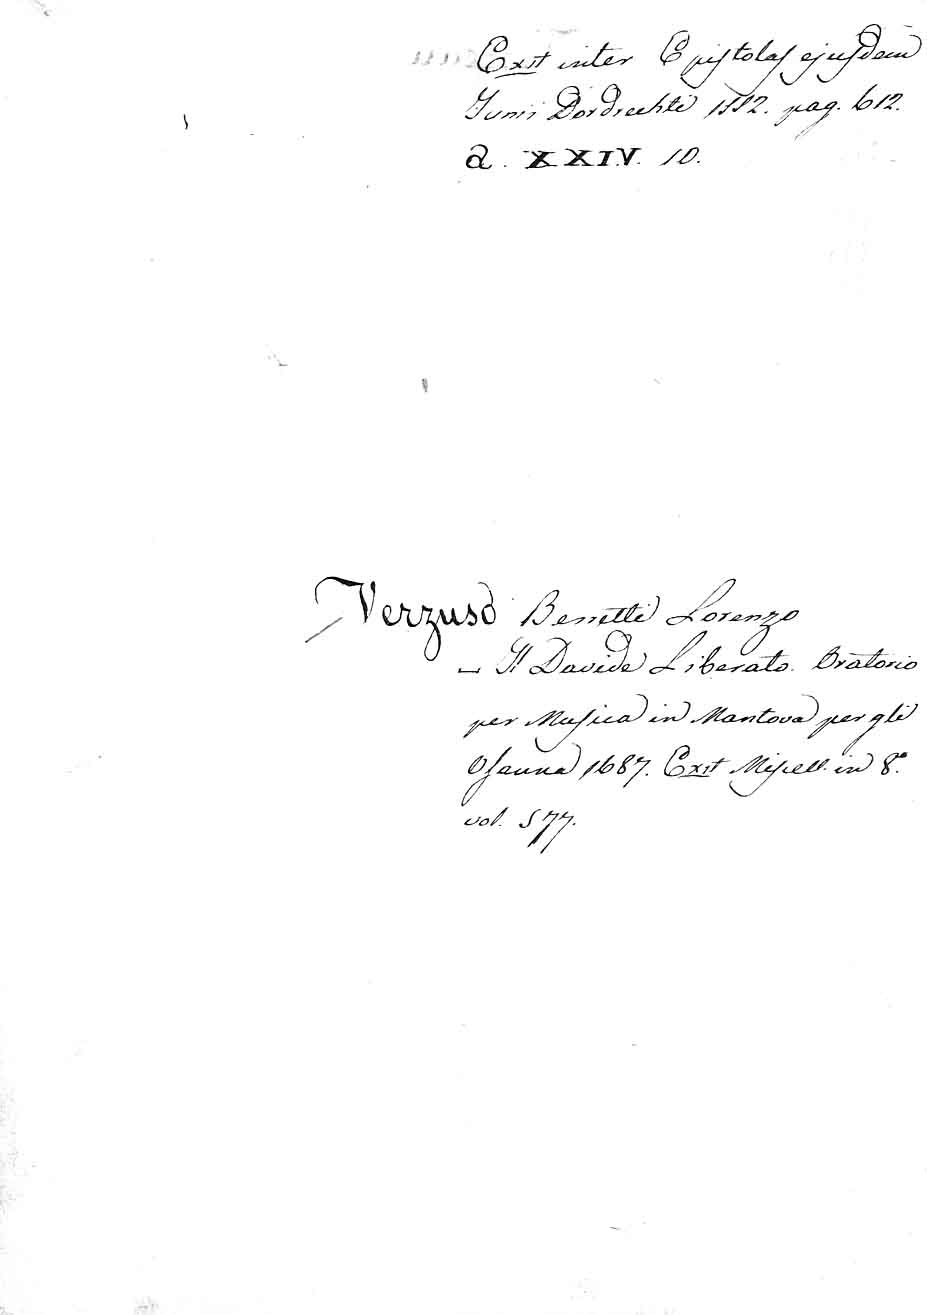 Exst inter Epistolas ejusdem
Junii Dordrechti 1552. pag. 612.
a. XXIV. 10.
Verzuso Benetti Lorenzo
– Il Davide Liberato. Oratorio
per Musica in Mantova per gli
Osanna 1687. Exst Miscell. in 8.°
vol. 577.